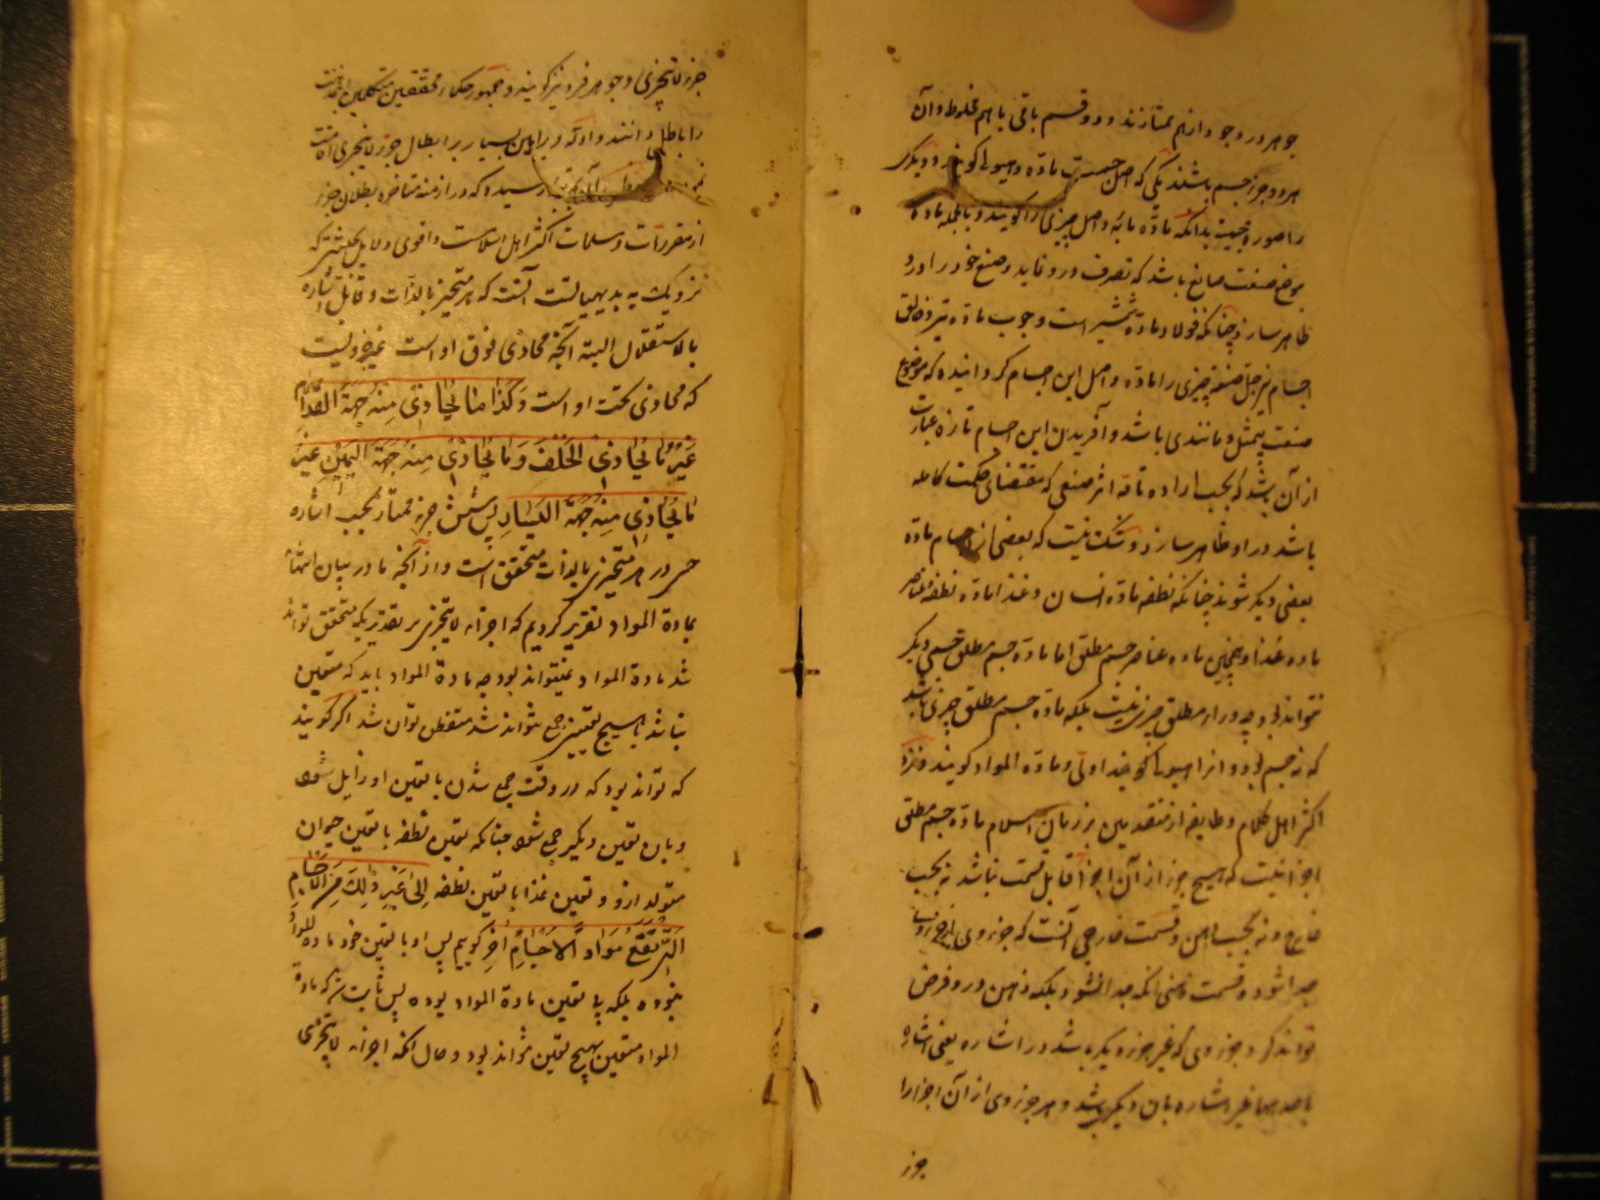 جوهر در وجود از هم ممتازند و دو قسم باقی با هم مخلوط و آن
هر دو جزء جسم باشند یکی که اصل جسمست ماده و هیولی گویند و دیگری
را صورة جسمیه بدانکه ماده مایه و اصل چیزی را گویند و بالجمله ماده
موضع صنعت صانع باشد که تصرف درو نماید و صنع خود را درو
ظاهر سازد چنانکه فولاد ماده شمشیر است و چوب ماده تیر و خالق
اجسام نیز جل صنعه چیزی را ماده و اصل این اجسام گردانیده که موضوع
صنعت بیمثل و مانندی باشد و آفریدن این اجسام تازه عبارت
از آن باشد که بحسب اراده تامه اثر صنعی که مقتضای حکمت کامله
باشد در او ظاهر سازد و شک نیست که بعضی از اجسام ماده
بعضی دیگر شوند چنانکه نطفه ماده انسان و غذا ماده نطفه و عناصر
ماده غذا و همچنین ماده عناصر جسم مطلق اما ماده جسم مطلق جسمی دیگر
نتواند بود چه وراء مطلق چیزی نیست بلکه ماده جسم مطلق چیزی باشد
که نه جسم بود و آنرا هیولی گویند اولی و ماده المواد گویند و نزد
اکثر اهل کلام و طایفه از متقدمین بر زمان اسلام ماده جسم مطلق
اجزائیست که هیچ جزء از آن اجزا قابل قسمت نباشد نه بحسب
خارج و نه بحسب ذهن و قسمت خارجی آنست که جزوی از جزوی
جدا شود و قسمت ذهنی آنکه جدا نشود بلکه ذهن درو فرض
تواند کرد جزوی که غیر جزو دیگر باشد در اشاره یعنی اشاره
باحدهما غیر اشاره بان دیگر باشد و هر جزوی از آن اجزا را
جزء
جزء لا یتجزی و جوهر فرد نیز گویند و جمهور حکما و محققین متکلمین این مذهب
را باطل دانند و ادله و براهین بسیار بر ابطال جزء لا یتجزی اقامت
رسیده که در ازمنه متاخره بطلان جزء
از مقررات و مسلمات اکثر اهل اسلامست و اقوی دلایل حکمت که
نزدیک به بدیهیاتست آنست که هر متحیز بالذات و قابل اشاره
بالاستقلال البته آنچه محاذی فوق او است غیر جزویست
که محاذی تحت او است وَكَذَا مَا يُحَاذِي مِنْهُ جِهَةَ القُدَّامِ
غَيْرُ مَا يُحَاذِي الخَلْفَ وَمَا يُحَاذِي مِنْهُ جِهَةَ اليَمِيْنِ غَيْرُ
مَا يُحَاذِي مِنْهُ جِهَةَ اليَسَارِ پس شش جزء ممتاز بحسب اشاره
حسی در هر متحیزی بالذات متحقق است و از آنچه ما در بیان انتها
بماده المواد تقریر کردیم که اجزاء لا یتجزی بر تقدیریکه متحقق تواند
شد مادة المواد نمیتواند بود چه مادة المواد باید که متعین
نباشد بهیچ تعینی جمع نتواند شد متفطن توان شد اگر گویند
که تواند بود که در وقت جمع شدن با تعین او زایل شود
و بان تعین دیگر جمع شود چنانکه تعین نطفه با تعین حیوان
متولد ازو و تعین غذا با تعین نطفه اِلیٰ غَيْرِ ذٰلِكَ مِنَ الاَجْسَامِ
الَّتِي تَقَعُ مَوَادَّ الاَجْسَامِ اُخَرَ گوییم پس او با تعین خود ماده المواد
نبوده بلکه بی تعین مادة المواد بوده پس ثابت شد که مادة
المواد متعین بهیچ تعین نتواند بود و حال آنکه اجزاء لا یتجزی